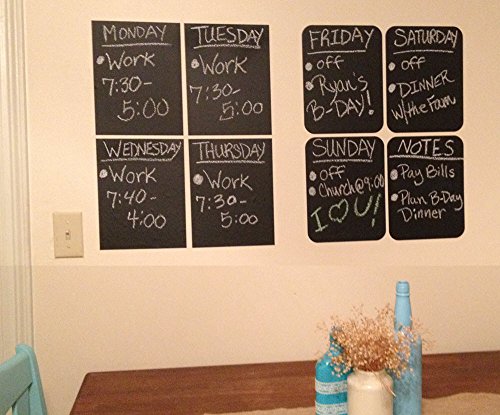 MONDAY
• Work
7:30-
5:00
TUESDAY
• Work
7:30-
5:00
WEDNESDAY
• Work
7:40-
4:00
THURSDAY
• Work
7:30-
5:00
FRIDAY
• off
• Ryan's
B-DAY!
SATURDAY
• off
• DINNER
w/the Fam
SUNDAY
• Off
• Church@9:00
I ♡ U!
NOTES
• Pay Bills
• Plan B-Day
Dinner